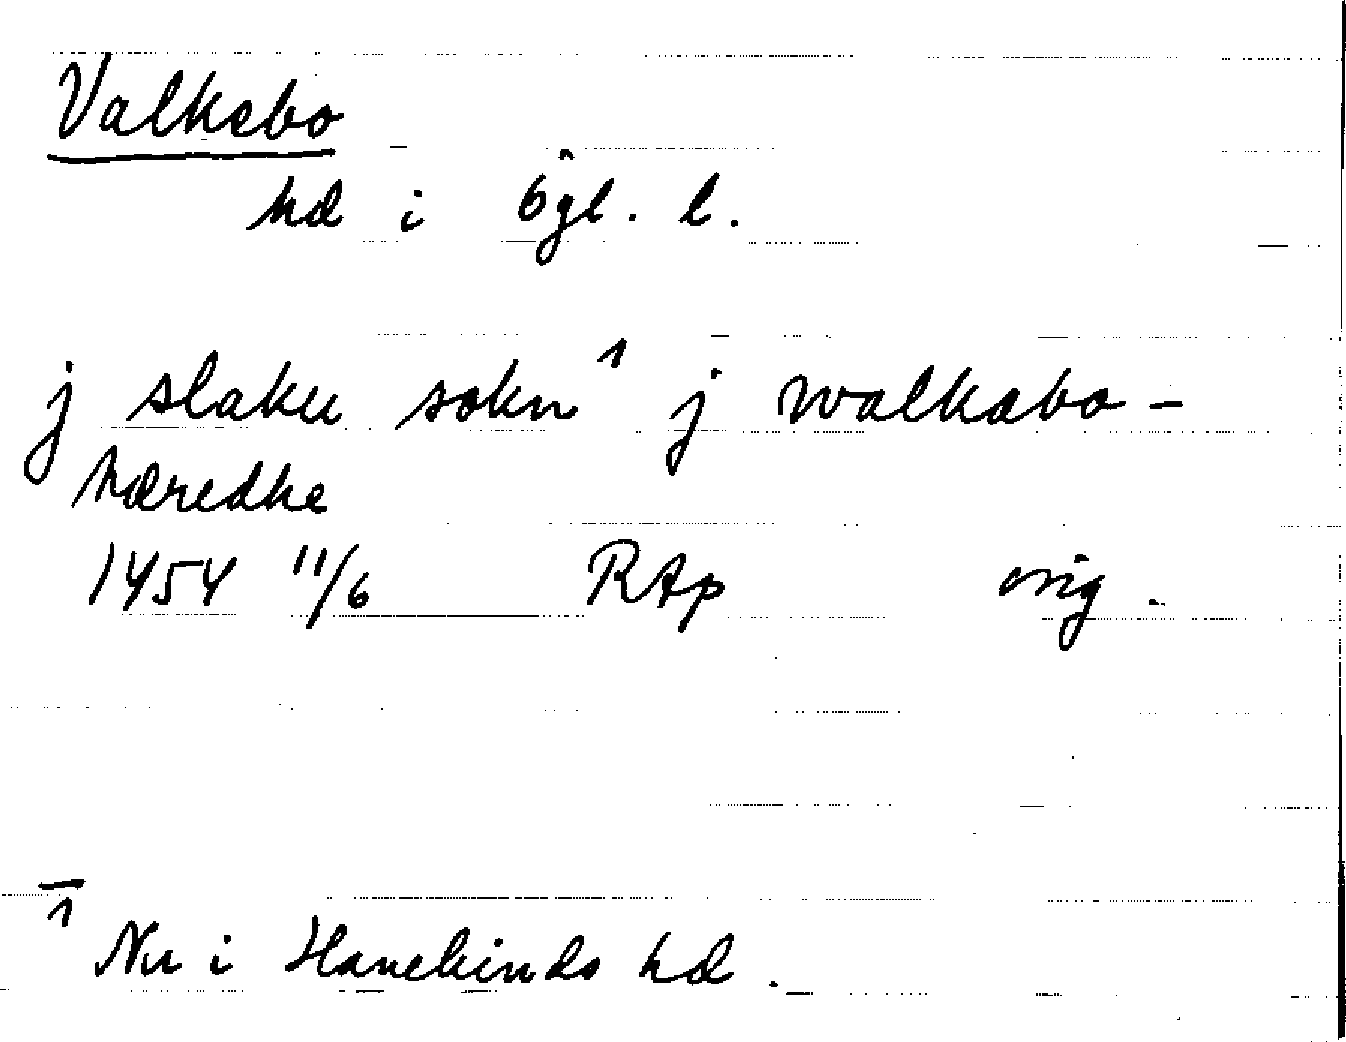 Valkebo
hd i Ögl. l.
j slaku sokn¹ j walkabo-
hæredhe
1454 11/6 RAp orig.
1 Nu i Hanekinds hd.